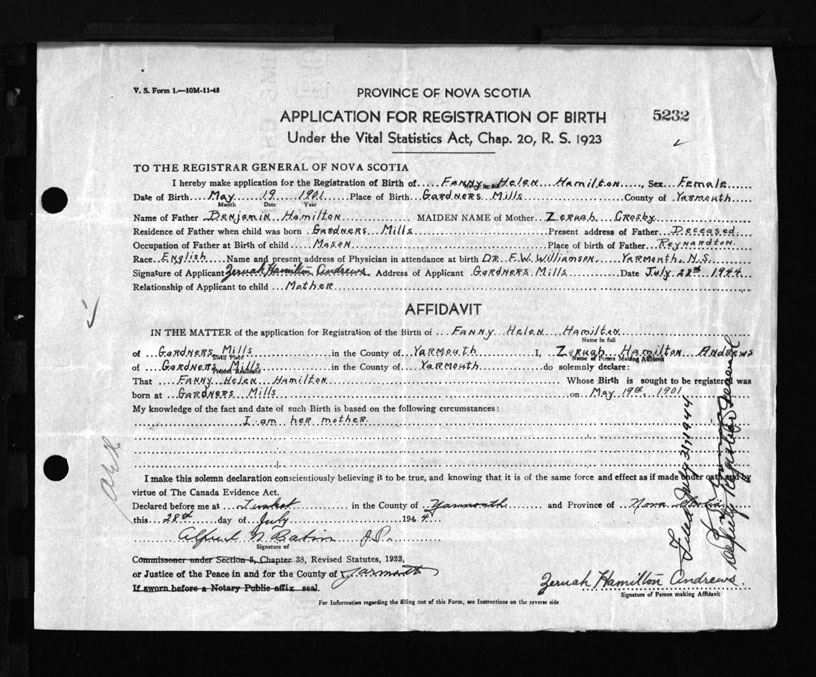 V. S. Form 1.—10M-11-43
PROVINCE OF NOVA SCOTIA
APPLICATION FOR REGISTRATION OF BIRTH
5232
Under the Vital Statistics Act, Chap. 20, R. S. 1923
TO THE REGISTRAR GENERAL OF NOVA SCOTIA
I hereby make application for the Registration of Birth of Fanny Helen Hamilton, Sex Female
Date of Birth May 19 1901 Place of Birth Gardners Mills County of Yarmouth
Month Date Year
Name of Father Benjamin Hamilton MAIDEN NAME of Mother Zeruah Crosby
Residence of Father when child was born Gardners Mills Present address of Father Deceased
Occupation of Father at Birth of child Mason Place of birth of Father Reynardton
Race English Name and present address of Physician in attendance at birth Dr. F. W. Williamson Yarmouth, N.S.
Signature of Applicant Zeruah Hamilton Andrews Address of Applicant Gardners Mills Date July 28th 1944
Relationship of Applicant to child Mother
AFFIDAVIT
IN THE MATTER of the application for Registration of the Birth of Fanny Helen Hamilton
Name in full
of Gardners Mills in the County of Yarmouth I, Zeruah Hamilton Andrews
Name of Person Making Affidavit
of Gardners Mills in the County of Yarmouth do solemnly declare:
That Fanny Helen Hamilton Whose Birth is sought to be registered was
born at Gardners Mills on May 19th, 1901
My knowledge of the fact and date of such Birth is based on the following circumstances:
I am her mother
I make this solemn declaration conscientiously believing it to be true, and knowing that it is of the same force and effect as if made under oath and by
virtue of The Canada Evidence Act.
Declared before me at in the County of Yarmouth and Province of Nova Scotia
this 28th day of July 1944
Alfred N Babin J.P.
Signature of
Commissoner under Section 5, Chapter 38, Revised Statutes, 1923,
or Justice of the Peace in and for the County of Yarmouth
If sworn before a Notary Public affix seal.
Zeruah Hamilton Andrews
Signature of Person making Affidavit
For Information regarding the filling out of this Form, see Instructions on the reverse side
Filed July 31, 1944
Deputy Registrar General